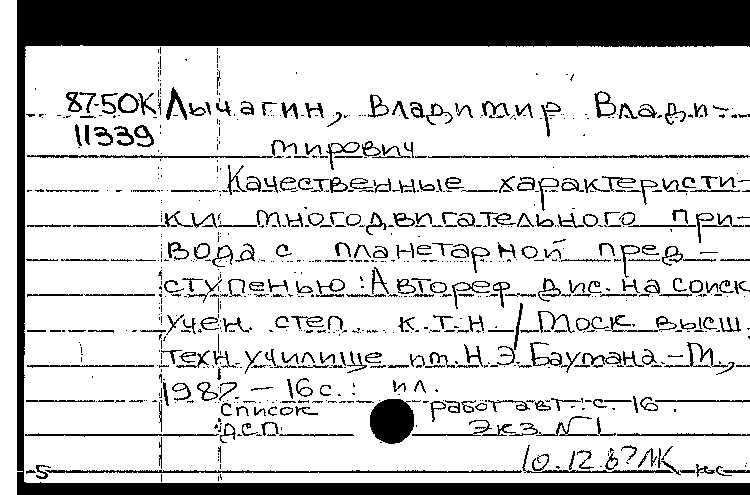 87-5ОК Лычагин, Владимир Влади-
11339 мирович
Качественные характеристи-
ки многодвигательного при-
вода с планетарной пред-
ступенью : Автореф. дис. на соиск
учен. степ. к.т.н. / Моск. высш.
техн. училище им. Н.Э. Баумана. - М.,
1987. - 16 с. : ил.
Список работ авт.: с. 16.
ДСП Экз. №1
10.12.87 ЛК нс
5